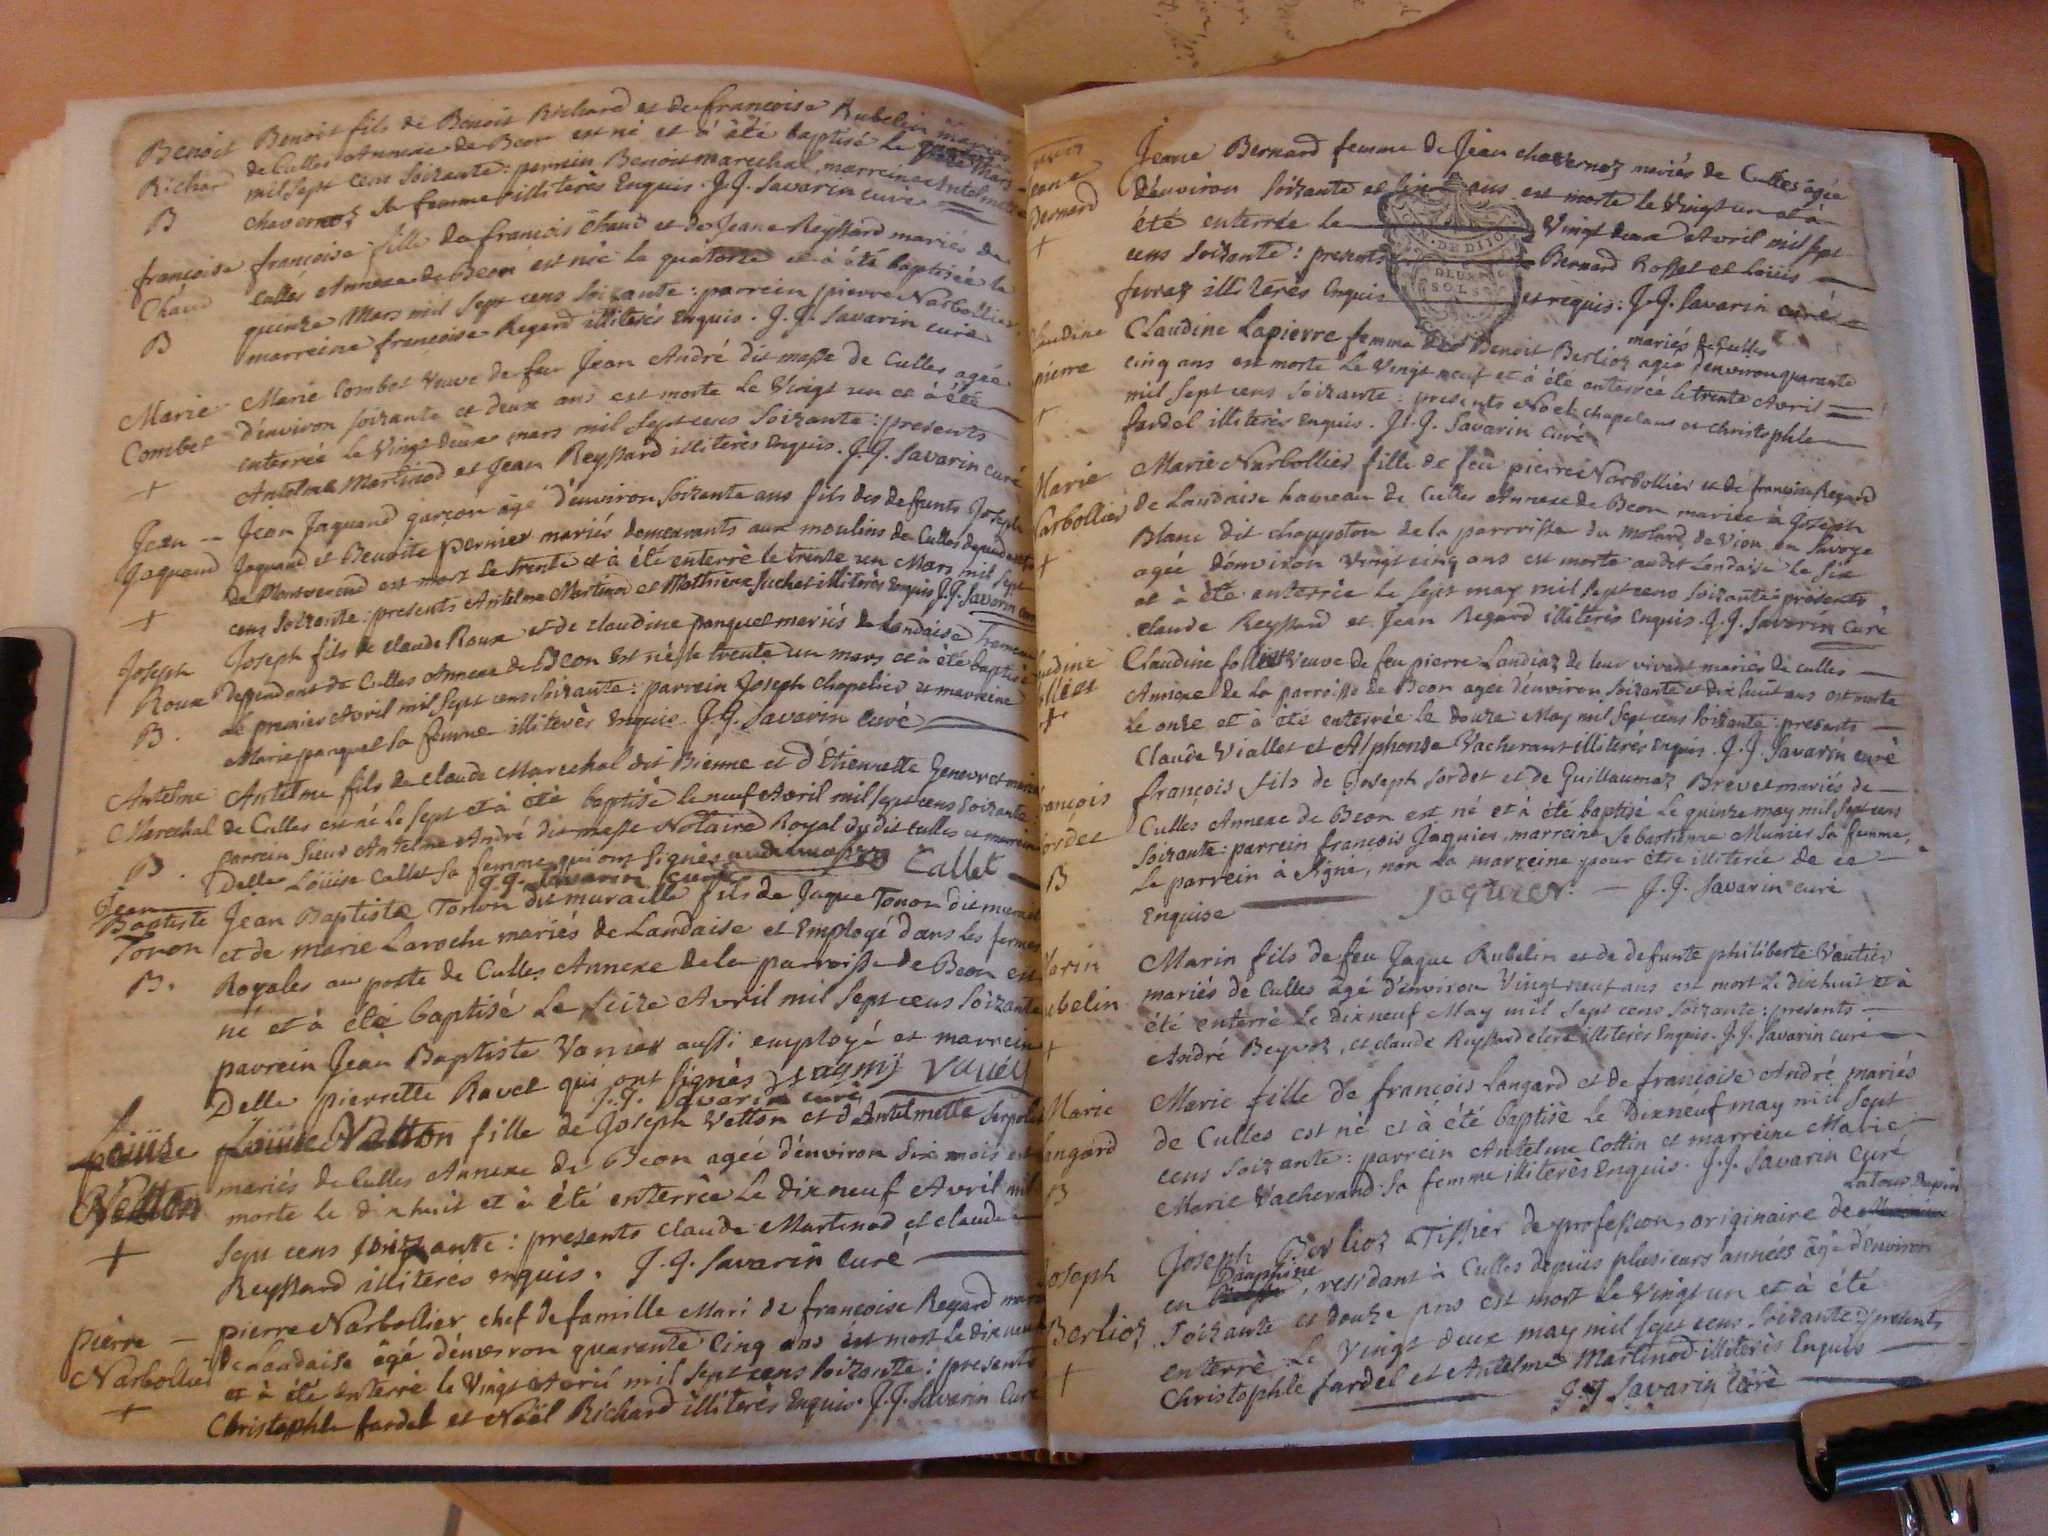 Benoit Benoit fils de Benoit Richard et de francoise Rubelin mariés
Richard de Culles Annexe de Beon est né et à été baptisé le Mars
B mil sept cens soizante : parrein Benoit marechal, marreine Antelmette
chavernoz sa femme illiterès Enquis. J.J. Savarin curé
francoise francoise fille de francois chaud et de Jeane Reyssard mariés de
Chaud Culles Annexe de Beon est née le quatorze et à été baptisée le
B quinze Mars mil sept cens soizante : parrein pierre Narbollier,
marreine francoise Regard illiterès Enquis. J.J. Savarin curé
Marie Marie Combet Veuve de feu Jean André dit masse de Culles agée
Combet d'environ soizante et deux ans est morte le Vingt un et à été
+ enterrée le Vingt deux mars mil sept cens soizante : presents
Antelme Martinod et Jean Reyssard illiterès Enquis. J.J. Savarin curé
Jean Jean Jaquand garçon âgé d'environ soizante ans fils des defunts Joseph
Jaquand Jaquand et Benoite pernier mariés demeurants aux moulins de Culles dependants
+ de Montverend est mort le trente et à été enterré le trente un Mars mil sept
cens soizante : presents Antelme Martinod et Mathieux Suchet illiterès Enquis J.J. Savarin curé
Joseph Joseph fils de claude Roux et de claudine panquel mariés de Landaise hameau
Roux Deppendant de Culles Annexe de Beon est né le trente un mars et à été baptisé
B. Le premier Avril mil sept cens soizante : parrein Joseph chapelier et marreine
Marie panquel sa femme illiterès Enquis. J.J. Savarin curé
Antelme Antelme fils de claude Marechal dit Bienne et d'Etiennette Genevr et mariés
Marechal de Culles est né le sept et à été baptisé le neuf Avril mil sept cens soizante
B. parrein Sieur Antelme André dit masse Notaire Royal du dit Culles et marreine
Delle Loüise Callet sa femme qui ont signès Callet
J.J. Savarin curé
Jean Baptiste Jean Baptiste Tonon dit muraille fils de Jaque Tonon dit muraille
Tonon et de marie Laroche mariés de Landaise et Employé dans les fermes
B. Royales au poste de Culles Annexe de la parroisse de Beon est
né et à été baptisé Le seize Avril mil sept cens soizante
parrein Jean Baptiste Vanier aussi employé et marrein
Delle pierrette Ravet qui ont signès
J.J. Savarin curé
Loüise Loüise Vetton fille de Joseph Vetton et d'Antelmette Serpolet
Vetton mariés de Culles Annexe de Beon agée d'environ six mois est
+ morte le dix huit et à été enterrée le dix neuf Avril mil
sept cens soizante : presents claude Martinod et claude
Reyssard illiterés enquis. J.J. Savarin curé
pierre pierre Narbollier chef de famille Mari de francoise Regard mariés
Narbollier de Landaise âgé d'environ quarante cinq ans est mort le dix neuf
+ et à été enterré le Vingt Avril mil sept cens soizante : presents
Christophle fardel et Noël Richard illiterès Enquis. J.J. Savarin Curé
Jeane Jeane Bernard femme de Jean chavernoz mariés de Culles agée
Bernard d'environ soizante et cinq ans est morte le Vingt un et à
+ été enterrée le Vingt deux Avril mil sept
cens soizante : presents Bernard Rosset et Loüis
ferraz illiterès Enquis et requis : J.J. Savarin curé
DE DIJON
SOLS
Claudine Claudine Lapierre femme de Benoit Berlioz mariés de Culles agée d'environ quarante
pierre cinq ans est morte le Vingt neuf et à été enterrée le trente Avril
+ mil sept cens soizante : presents Noel chapelans et christophle
fardel illiterès enquis. J.J. Savarin curé
Marie Marie Narbollier fille de feu pierre Narbollier et de francoise Regard
Narbollier de Landaise hameau de Culles Annexe de Beon mariée à Joseph
+ Blanc dit chappoton de la parroisse du Molard de Vion en Savoye
agée d'environ Vingt cinq ans est morte audit Landaise le six
et à été enterrée le sept may mil sept cens soizante : presents
claude Reyssard et Jean Regard illiterès Enquis. J.J. Savarin Curé
Claudine Claudine folliet Veuve de feu pierre Landiaz de leur vivant mariés de culles
folliet Annexe de la parroisse de Beon agée d'environ soizante et dix huit ans est morte
+ le onze et à été enterrée le douze May mil sept cens soizante : presents
Claude Viallet et Alphonse Vacherant illiterés enquis. J.J. Savarin curé
francois françois fils de Joseph Sordet et de Guillaumaz Brevet mariés de
Sordet Culles Annexe de Beon est né et à été baptisé Le quinze may mil sept cens
B soizante : parrein francois Jaquier, marreine Sebastienne Munier sa femme,
Le parrein à signé, non la marreine pour être illiterée de ce
Enquise JAQUIER. J.J. Savarin curé
Marin Marin fils de feu Jaque Rubelin et de defunte philiberte Vautier
Rubelin mariés de Culles âgé d'environ Vingt neuf ans est mort le dix huit et à
+ été enterré Le dix neuf May mil sept cens soizante : presents
André Beyvoz, et claude Reyssard illiterès Enquis. J.J. Savarin curé
Marie Marie fille de françois Langard et de francoise André mariés
Langard de Culles est né et à été baptisé Le Dix neuf may mil sept
B cens soizante : parrein Antelme Cottin et marreine Marie
Marie Vacherand sa femme illiterès Enquis. J.J. Savarin Curé
Joseph Joseph Berlioz Tissier de profession, originaire de Latour Dupin
Berlioz en Dauphine, residant à Culles depuis plusieurs années âgé d'environ
+ soizante et douze ans est mort le vingt un et à été
enterré Le Vingt deux may mil sept cens soizante : presents
Christophle fardel et Antelme Martinod illiterès Enquis
J.J Savarin Curé